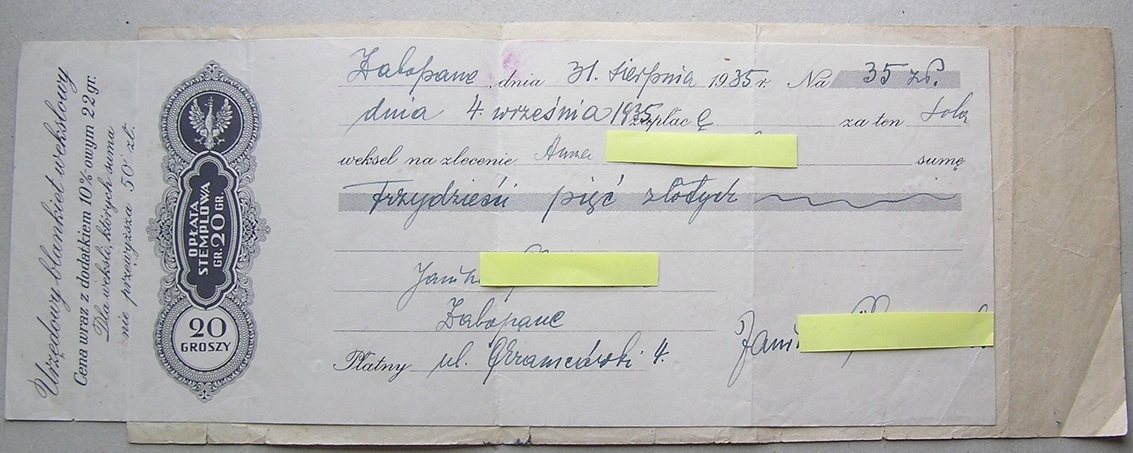 Urzędowy blankiet wekslowy
Cena wraz z dodatkiem 10%-owym 22 gr.
Dla weksli, których suma
nie przewyższa 50 zł.
OPŁATA
STEMPLOWA
GR. 20 GR.
20
GROSZY
Zakopane dnia 31. sierpnia 1935 r. Na 35 zł.
dnia 4. września 1935 zapłacę za ten sola
weksel na zlecenie Anna sumę
Trzydzieści pięć złotych
Zakopane
Płatny ul. 4.